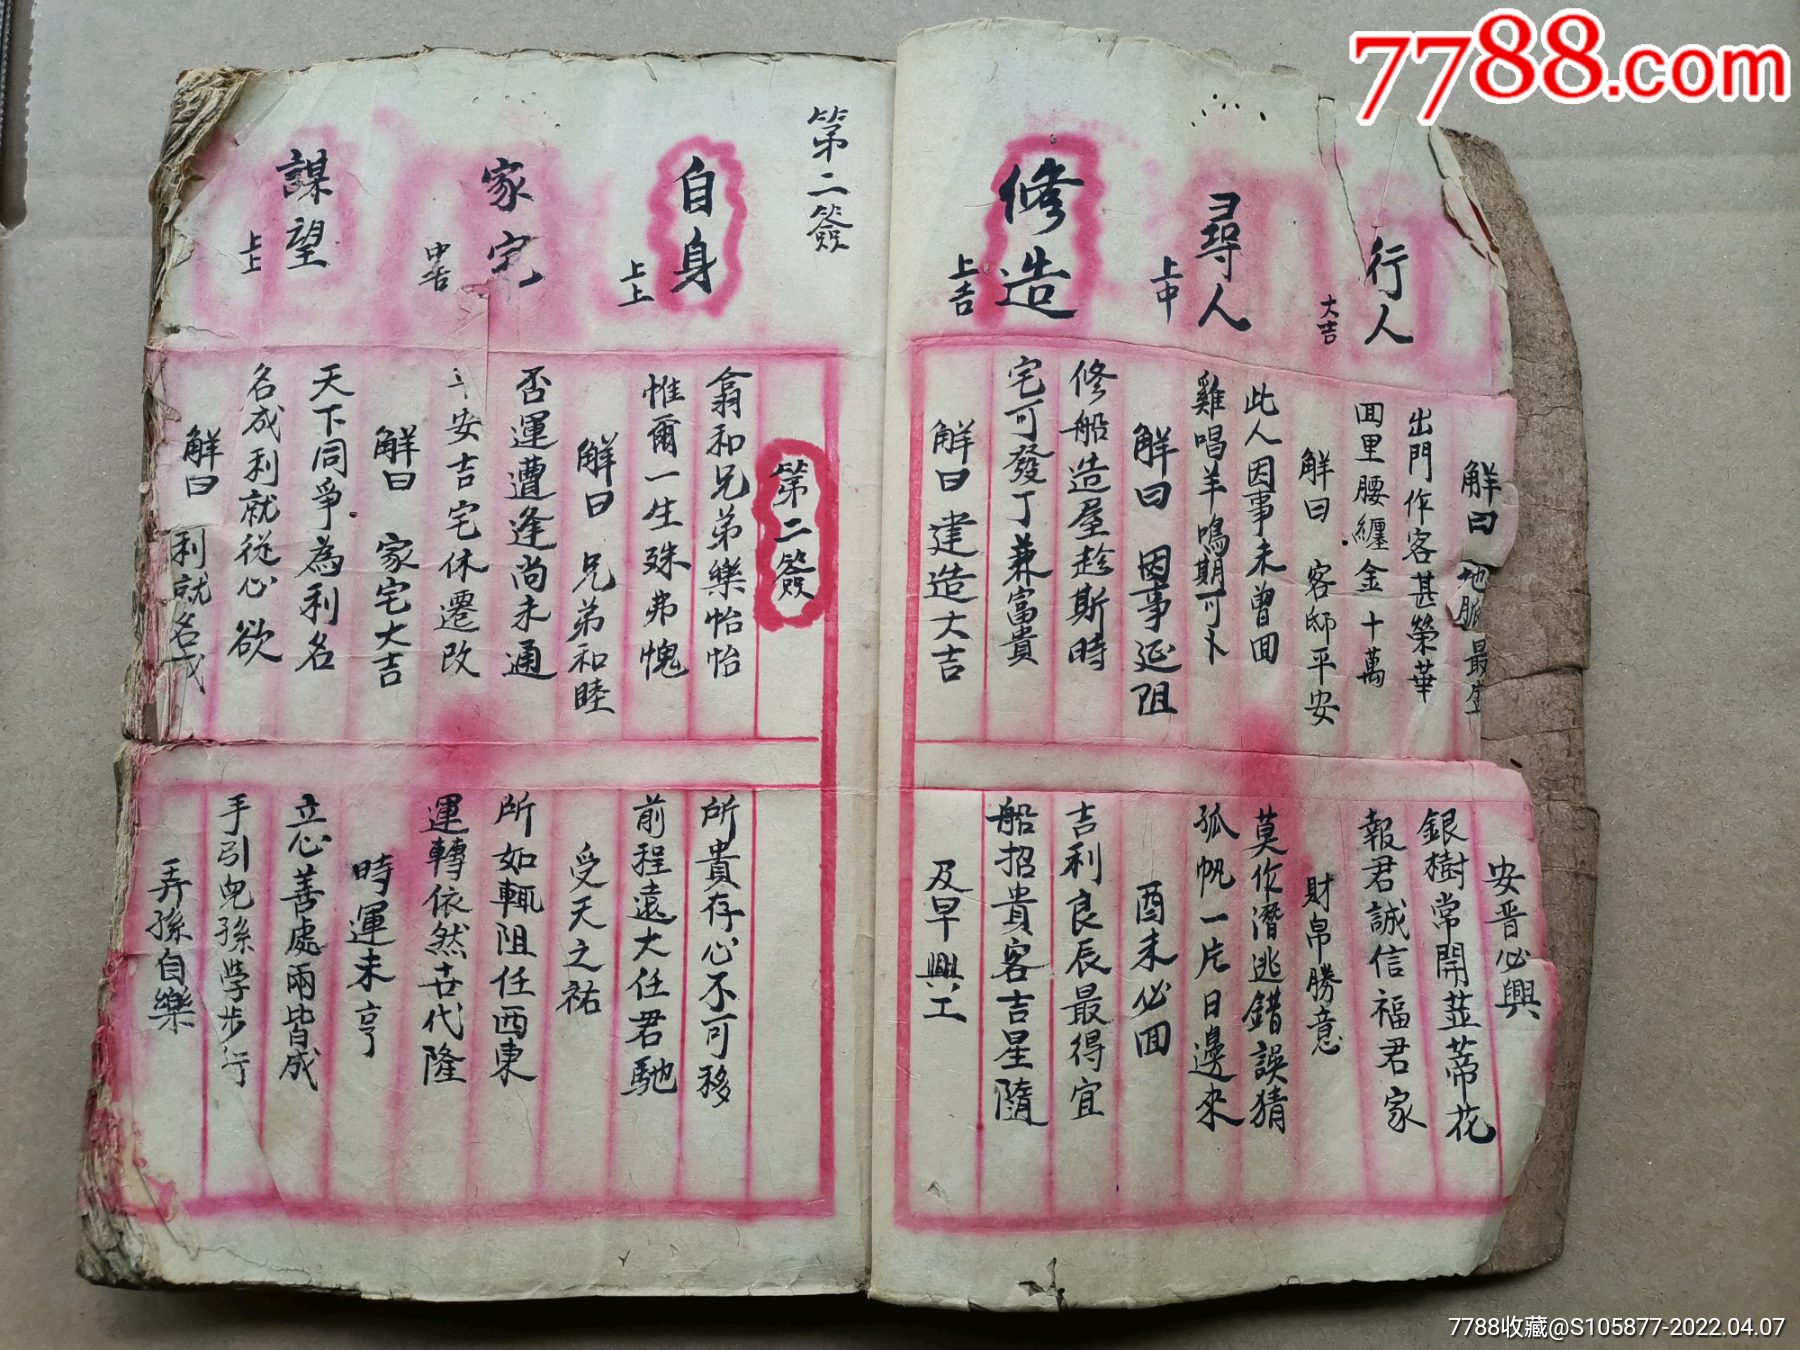 7788.com
行人
大吉
解曰 地脈最盛
安晋必興
出門作客甚榮華
銀樹常開並蒂花
囬里腰纏金十萬
報君誠信福君家
解曰 客邸平安
財帛勝意
尋人
上中
此人因事未曾囬
莫作潛逃錯誤猜
雞唱羊鳴期可卜
孤帆一片日邊來
解曰 因事延阻
酉未必囬
修造
上吉
修船造屋趁斯時
吉利良辰最得宜
宅可發丁兼富貴
船招貴客吉星隨
解曰 建造大吉
及早興工
第二簽
第二簽
自身
上上
翕和兄弟樂怡怡
所貴存心不可移
惟爾一生殊弗愧
前程遠大任君馳
解曰 兄弟和睦
受天之祐
家宅
中吉
否運遭逢尚未通
所如輒阻任西東
安吉宅休遷改
運轉依然卋代隆
解曰 家宅大吉
時運未亨
謀望
上上
天下同爭為利名
立心善處兩皆成
名成利就從心欲
手引兒孫學步行
解曰 利就名成
弄孫自樂
7788收藏@S105877-2022.04.07